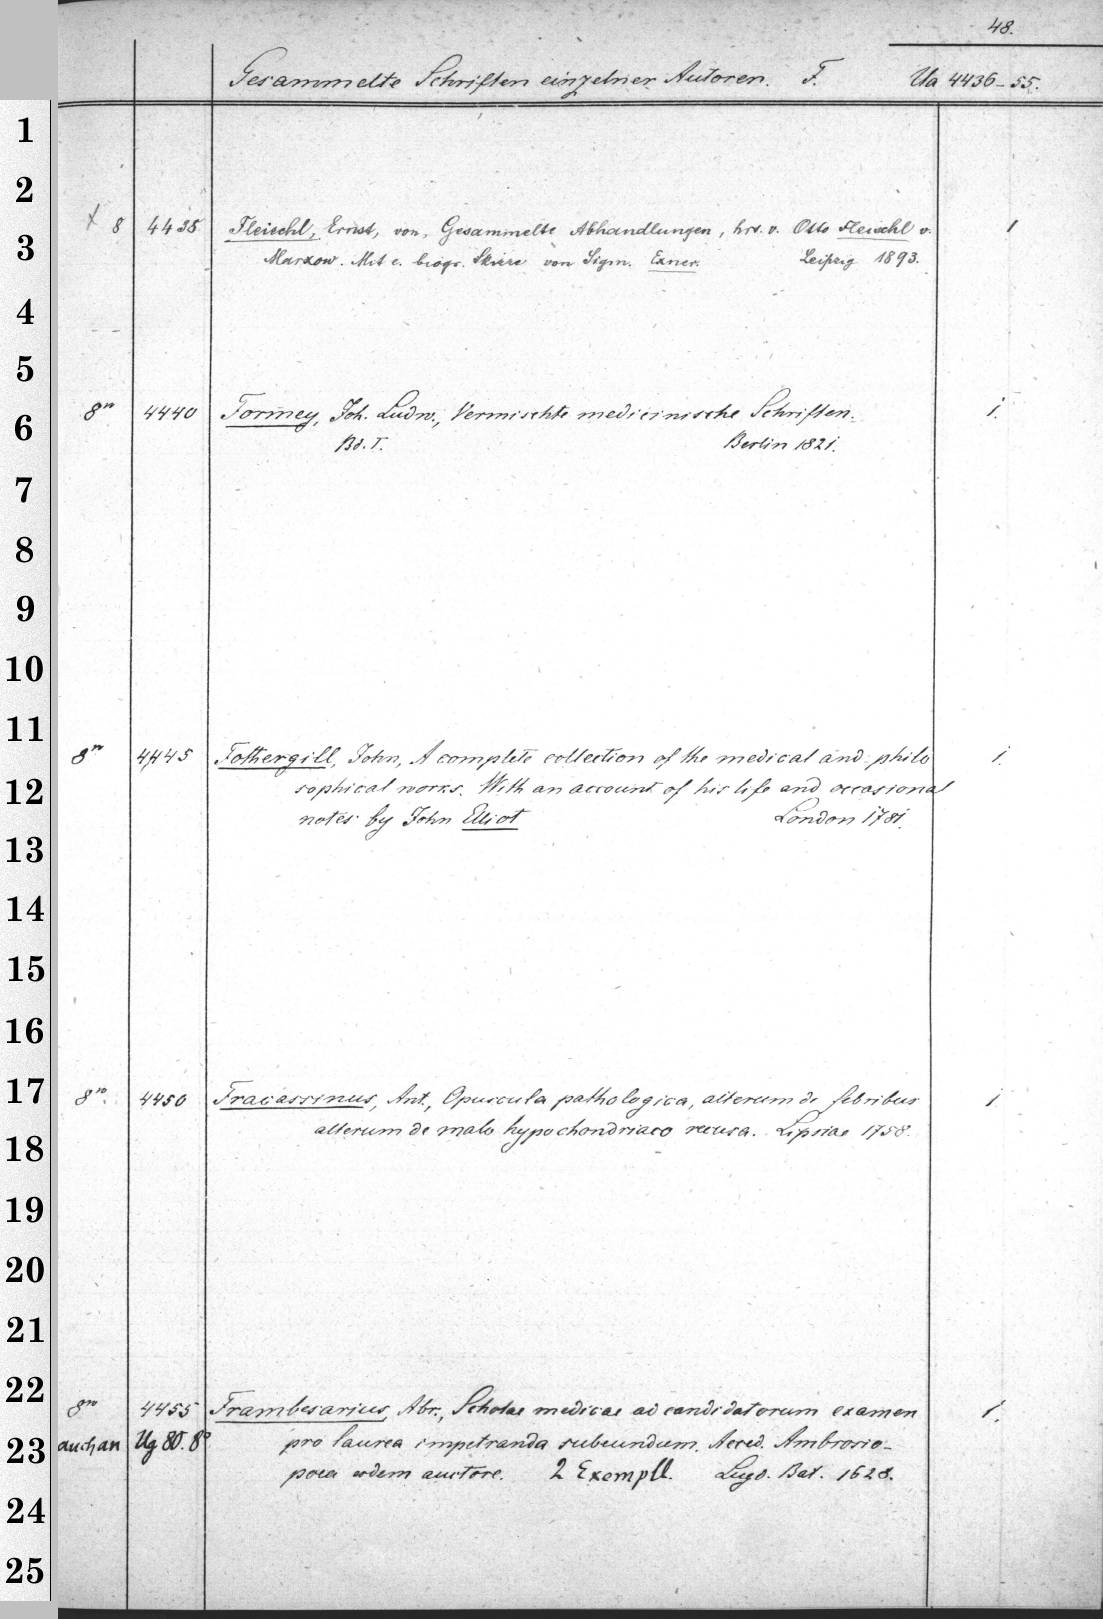 48.
Gesammelte Schriften einzelner Autoren. F. Ua 4436-55.
8 4438 Fleischl, Ernst, von, Gesammelte Abhandlungen, hrs. v. Otto Fleischl v. 1
Marxow. Mit e. biogr. Skizze von Sigm. Exner. Leipzig 1893.
8° 4440 Formey, Joh. Ludw., Vermischte medicinische Schriften. 1.
Bd. I. Berlin 1821.
8° 4445 Fothergill, John, A complete collection of the medical and philo 1
sophical works. With an account of his life and occasional
notes by John Elliot London 1781.
8° 4450 Fracassinus, Ant., Opuscula pathologica, alterum de febribus 1
alterum de malo hypochondriaco recusa. Lipsiae 1758.
8° 4455 Frambesarius, Abr., Scholae medicae ad candidatorum examen 1.
auch an Ug 80. 8° pro laurea impetranda subeundum. Acced. Ambrosio-
poea eodem auctore. 2 Exempll. Lugd. Bat. 1628.
1
2
3
4
5
6
7
8
9
10
11
12
13
14
15
16
17
18
19
20
21
22
23
24
25